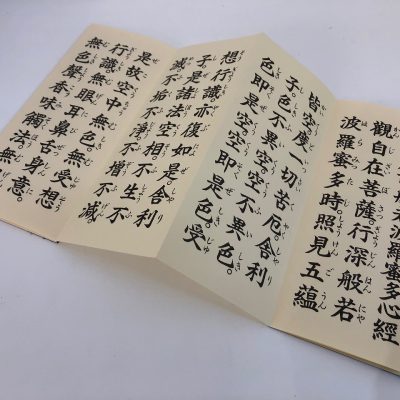 般若波羅蜜多心經
觀自在菩薩。行深般若
波羅蜜多時。照見五蘊
皆空度一切苦厄。舍利
子。色不異空。空不異色。
色即是空。空即是色。受
想行識亦復如是。舍利
子。是諸法空相。不生不
滅。不垢不淨。不增不減。
是故空中無色。無受想
行識。無眼耳鼻舌身意。
無色聲香味觸法。無